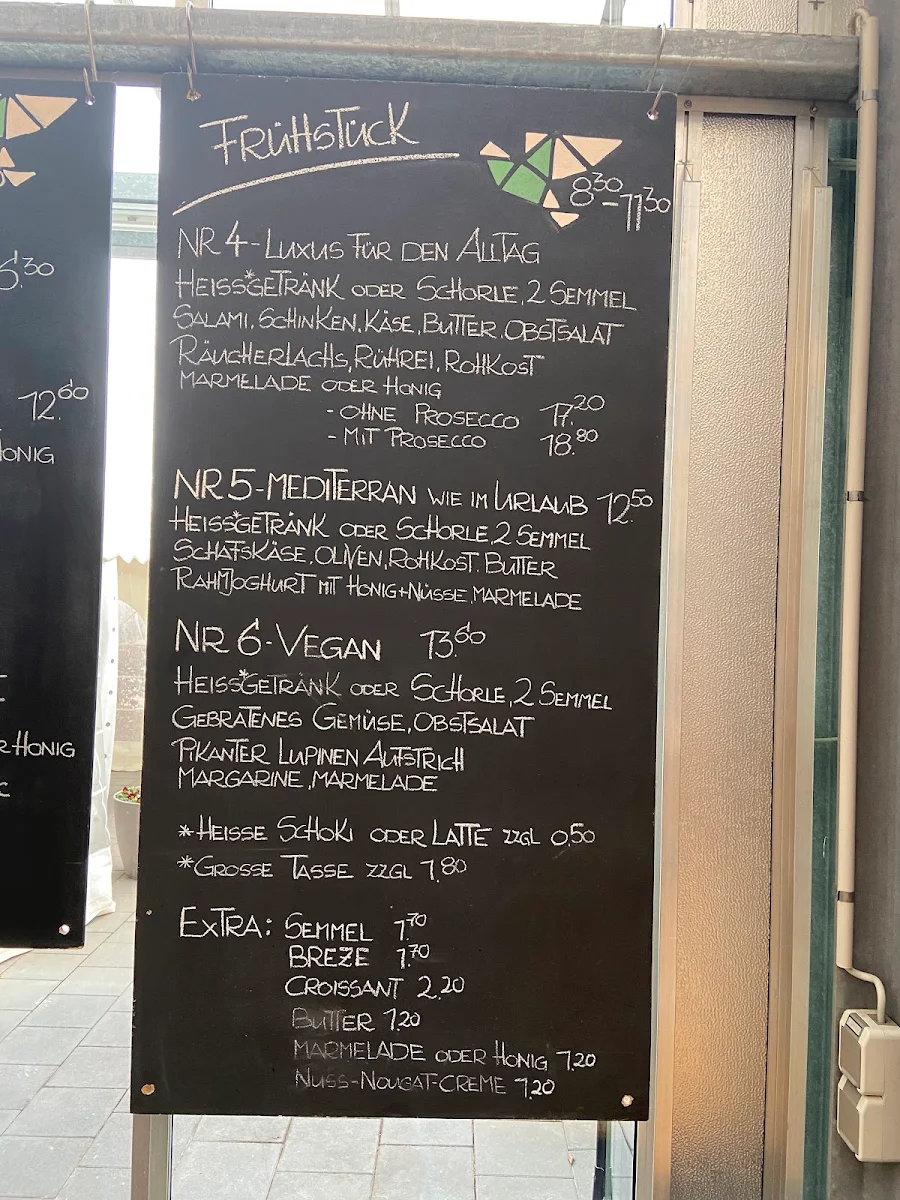 6.30
12.60
HONIG
R HONIG
FRÜHSTÜCK
8 30 - 11 30
NR 4 - LUXUS FÜR DEN ALLTAG
HEISS*GETRÄNK ODER SCHORLE, 2 SEMMEL
SALAMI, SCHINKEN, KÄSE, BUTTER, OBSTSALAT
RÄUCHERLACHS, RÜHREI, ROHKOST
MARMELADE ODER HONIG
- OHNE PROSECCO 17.20
- MIT PROSECCO 18.80
NR 5 - MEDITERRAN WIE IM URLAUB 12.50
HEISS*GETRÄNK ODER SCHORLE, 2 SEMMEL
SCHAFSKÄSE, OLIVEN, ROHKOST, BUTTER
RAHMJOGHURT MIT HONIG+NÜSSE, MARMELADE
NR 6 - VEGAN 13.60
HEISS*GETRÄNK ODER SCHORLE, 2 SEMMEL
GEBRATENES GEMÜSE, OBSTSALAT
PIKANTER LUPINEN AUFSTRICH
MARGARINE, MARMELADE
*HEISSE SCHOKI ODER LATTE ZZGL 0,50
*GROSSE TASSE ZZGL 1.80
EXTRA: SEMMEL 1.70
BREZE 1.70
CROISSANT 2.20
BUTTER 1.20
MARMELADE ODER HONIG 1.20
NUSS-NOUGAT-CREME 1.20